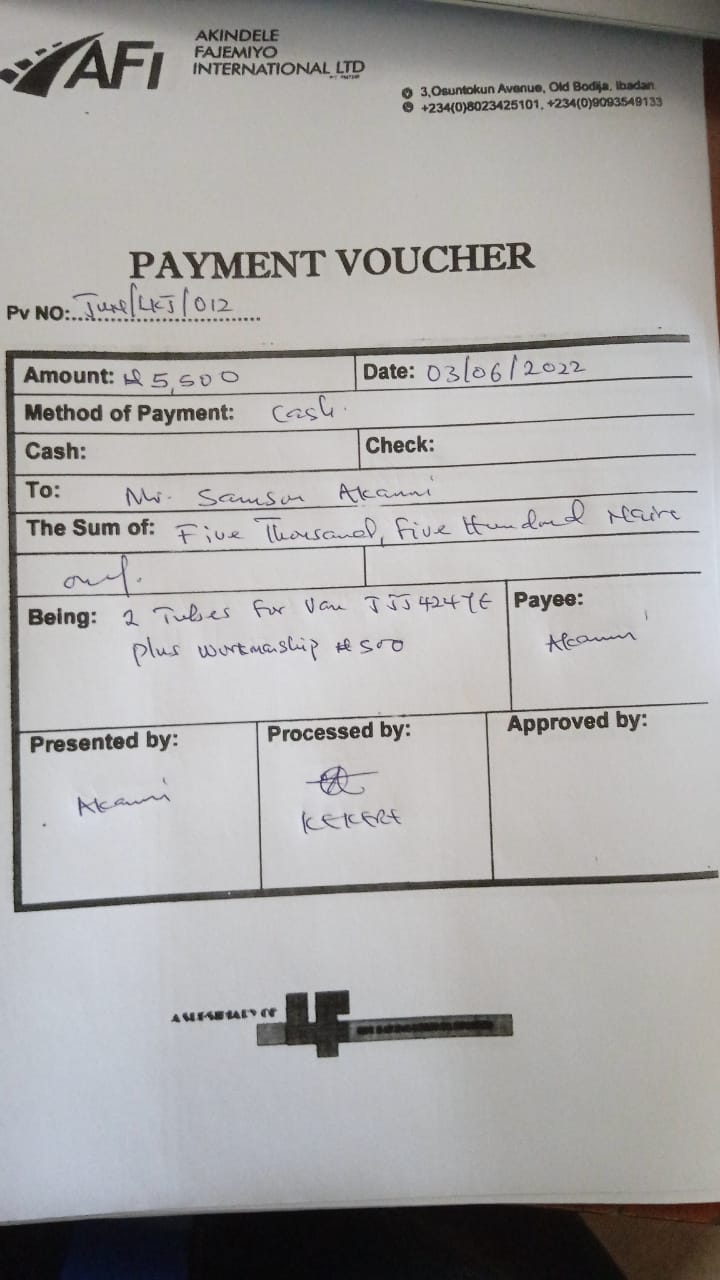 AFI
AKINDELE
FAJEMIYO
INTERNATIONAL LTD
3,Osuntokun Avenue, Old Bodija, Ibadan.
+234(0)8023425101, +234(0)9093549133
PAYMENT VOUCHER
Pv NO:..June/LKJ/012
Amount: ₦5,500 Date: 03/06/2022
Method of Payment: Cash.
Cash: Check:
To: Mr. Samson Akanni
The Sum of: Five Thousand, Five Hundred Naira
only.
Being: 2 Tubes for Van JJJ424YE Payee:
plus workmanship ₦500 Akanni
Presented by: Processed by: Approved by:
Akanni KEKERE
A SUBSIDIARY OF